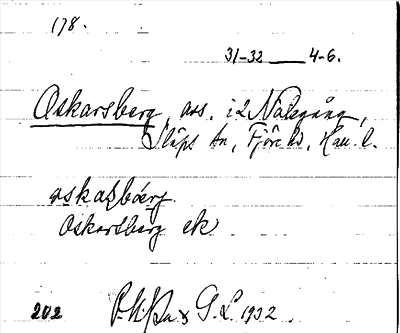 178.
31-32 4-6.
Oskarsberg, avs. i 2 Nolegång,
Släps sn, Fjäre hd, Hall. l.
oskaʂbærj.
Oskarsberg ek
202 G. L. 1932